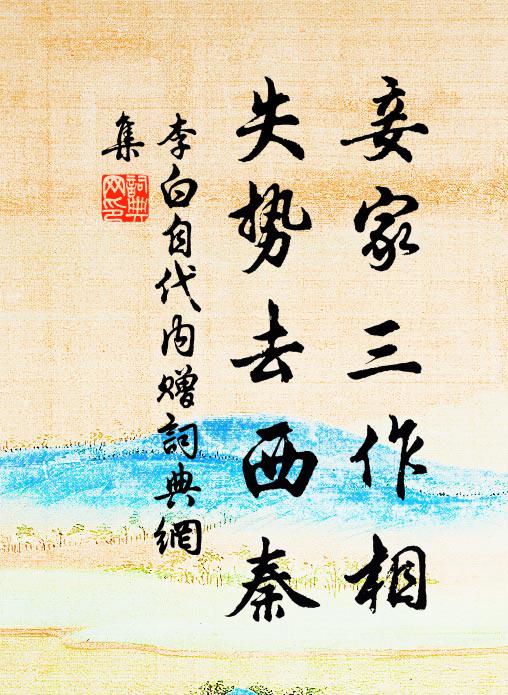 妾家三作相
失势去西秦
李白自代内赠詞典網
集
詞典网印